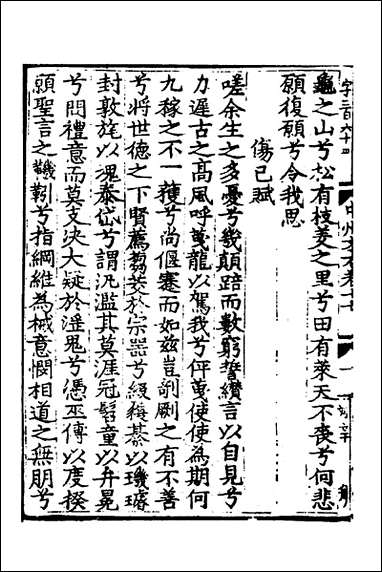 龜之山兮松有枝菱之里兮田有萊天不喪兮何悲
願復願兮令我思
傷已賦
嗟余生之多憂兮幾顛踣而數窮誓纘言以自見兮
力遲古之高風呼蒐龍以駕我兮伻蒐使使為期何
九稼之不一穫兮尚偃蹇而如茲豈剞劂之有不善
兮將世德之下賢薦芻茭於宗器兮綴蘋綦以璣璩
封敦旄以塊泰岱兮謂汎濫其莫涯冠髫童以弁冕
兮問禮意而莫支決大疑於淫鬼兮憑巫傳以度揆
顧聖言之鞿靷兮指綱維為械意惘相道之無朋兮